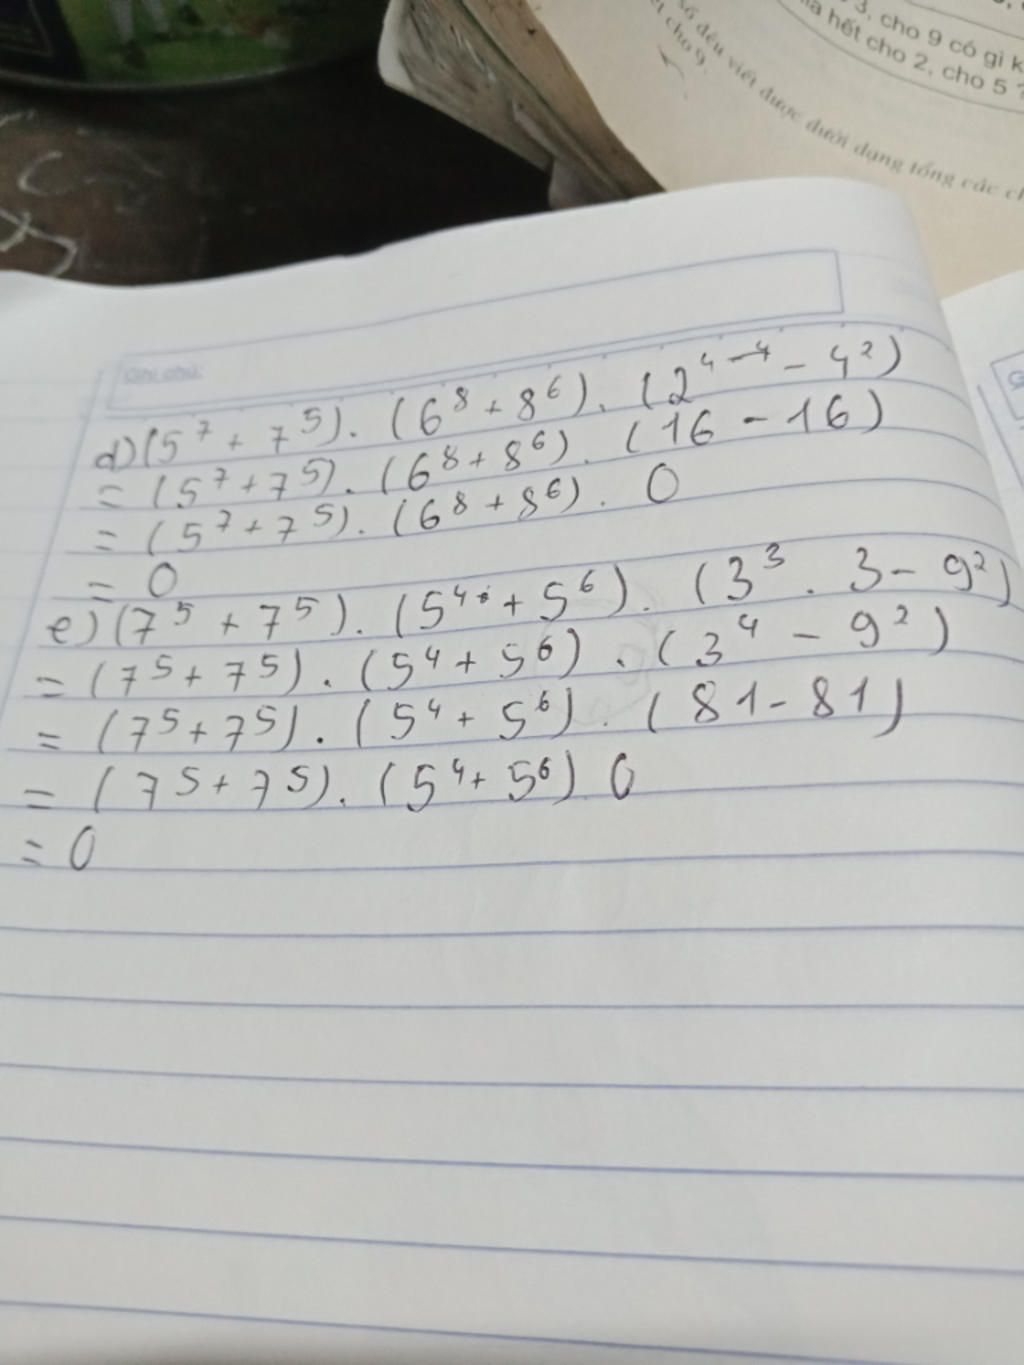 3, cho 9 có gì k
hết cho 2, cho 5 ?
số đều viết được dưới dạng tổng các ch
cho 9.
Ghi chú:
d) (5⁷ + 7⁵). (6⁸ + 8⁶). (2⁴⁻⁴ - 4²)
= (5⁷ + 7⁵). (6⁸ + 8⁶). (16 - 16)
= (5⁷ + 7⁵). (6⁸ + 8⁶). 0
= 0
e) (7⁵ + 7⁵). (5⁴ + 5⁶). (3³. 3 - 9²)
= (7⁵ + 7⁵). (5⁴ + 5⁶). (3⁴ - 9²)
= (7⁵ + 7⁵). (5⁴ + 5⁶). (81 - 81)
= (7⁵ + 7⁵). (5⁴ + 5⁶) 0
= 0